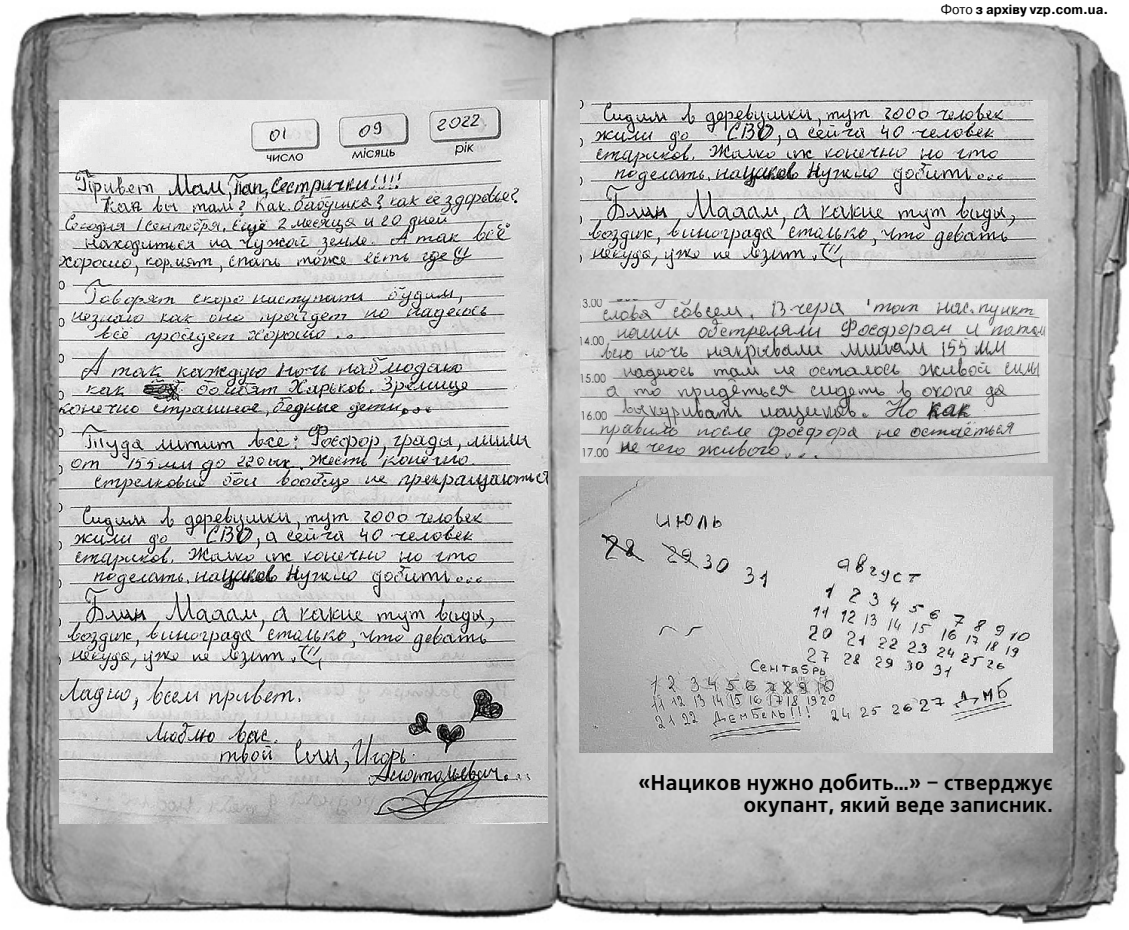 Фото з архіву vzp.com.ua.
01 09 2022
число місяць рік
Привет Мам, Пап, Сестрички!!!!
Как вы там? Как бабушка? как её здоровье?
Сегодня 1 сентября, ещё 2 месяца и 20 дней
находиться на чужой земле. А так всё
хорошо, кормят, спать тоже есть где
Говорят скоро наступати будим,
незнаю как оно пройдет но надеюсь
всё пройдет хорошо...
А так каждую ночь наблюдаю
как бомбят Харьков. Зрелище
конечно страшное, бедные дети...
Туда литит все: Фосфор, грады, мины
от 155мм до 220мк. Жесть конечно.
стрелковые бои вообще не прекращаються
Сидим в деревушки, тут 2000 человек
жили до СВО, а сейча 40 человек
стариков. Жалко их конечно но что
поделать, нациков Нужно добить...
Блин, Мааам, а какие тут виды,
воздих, винограда столько, что девать
некуда, уже не лезит.
Ладно, всем привет.
Люблю вас.
твой Сын, Игорь
Анатольевич...
Сидим в деревушки, тут 2000 человек
жили до СВО, а сейча 40 человек
стариков. Жалко их конечно но что
поделать, нациков Нужно добить...
Блин, Мааам, а какие тут виды,
воздих, винограда столько, что девать
некуда, уже не лезит.
3.00
слова совсем. Вчера тот нас. пункт
наши обстреляли Фосфором и потом
14.00
всю ночь накрывали минам 155 мм
надеюсь там не осталось живой силы
15.00
а то придёться сидеть в окопе да
16.00 выкуривать нациков. Но как
правило после фосфора не остаёться
17.00 не чего живого...
июль
28 29 30 31
август
1 2 3 4 5 6 7 8 9 10
11 12 13 14 15 16 17 18 19
20 21 22 23 24 25 26
27 28 29 30 31
Сентябрь
1 2 3 4 5 6 7 8 9 10
11 12 13 14 15 16 17 18 19 20
21 22 Дембель!!! 24 25 26 27 ДМБ
«Нациков нужно добить...» – стверджує
окупант, який веде записник.